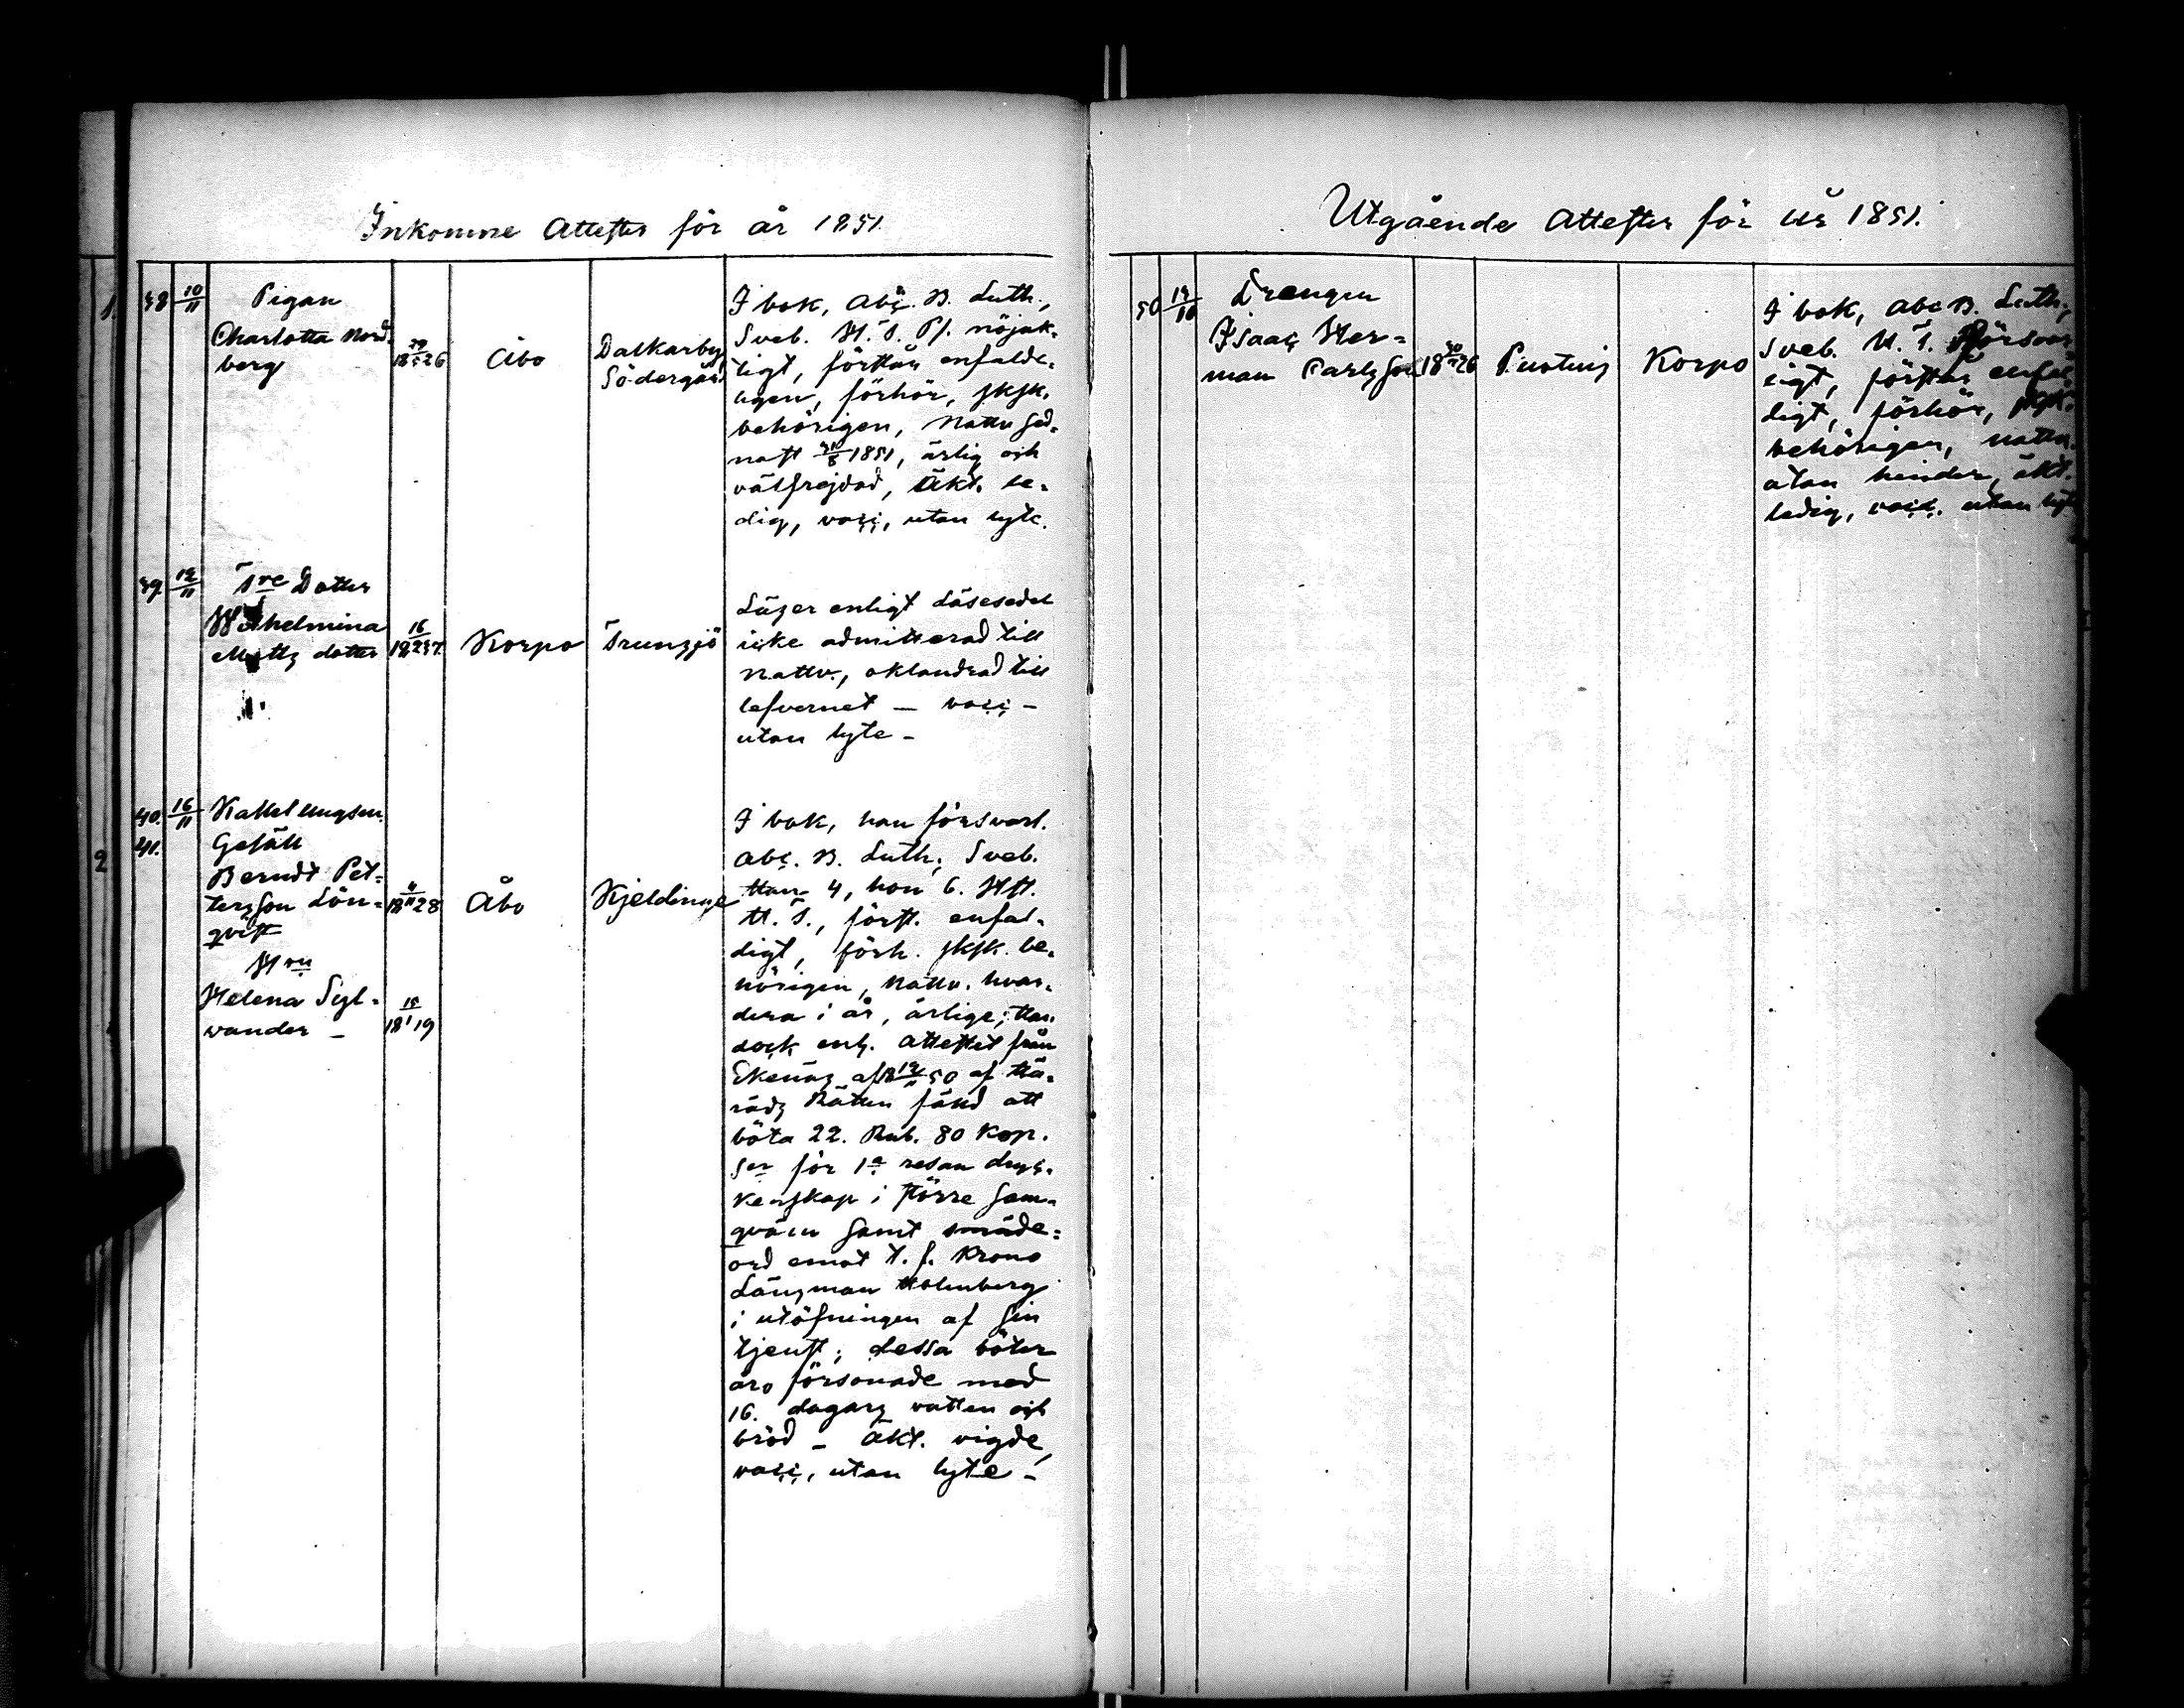 Inkomne Attester för år 1851.
1.
38 10/11
Pigan
Charlotta Nord-
berg
Åbo
Dalkarby
Södergård
I bok, Abc. B. Luth.,
Sveb. H. T. Ps. nöjak-
tigt, förstår enfalde-
ligen, förhör, sksk.
behörigen, Nattv. sed-
nast 31/8 1851, ärlig och
välfrejdad, Äkt. le-
dig, vacc, utan lyte.
39. 12/11
Tre Dotter
Wilhelmina
Matts dotter
Korpo
Trunsjö
Läser enligt Läsesedel
icke admitterad till
Nattv., oklandrad till
lefvernet – vacc –
utan lyte –
2
40. 16/11
41.
Gesäll
Berndt Pet-
tersson Lön-
qvist
18 11/11 28
Åbo
Kjeldinge
Hru
Helena Syl-
vander –
18 15/1 19
I bok, han försvarl.
Abc. B. Luth; Sveb.
Han 4, hon 6. Hft.
H. T., först. enfal-
digt, förh. sksk. be-
hörigen, Nattv. hvar-
dera i år, ärlige; Han
dock enl. Attestet från
Ekenäs af 18 12/11 50 af Hä-
rads Rätten fälld att
böta 22. Rub. 80 Kop.
Sr för 1a resan dryc-
kenskap i större sam-
qväm samt smäde-
ord emot t. f. Krono
Länsman Holmberg
i utöfningen af sin
tjenst; dessa böter
äro försonade med
16. dagars vatten och
bröd – Äkt. vigde,
vacc, utan lyte –
Utgående Attester för år 1851.
50
Drengen
Isaac Her-
man Carlsson
Korpo
I bok, Abc B. Luth.;
Sveb. H. T. försvar-
ligt, förstår enfal-
digt, förhör, sksk.
behörigen, nattv.
utan hinder, äkt.
ledig, vacc. utan lyte